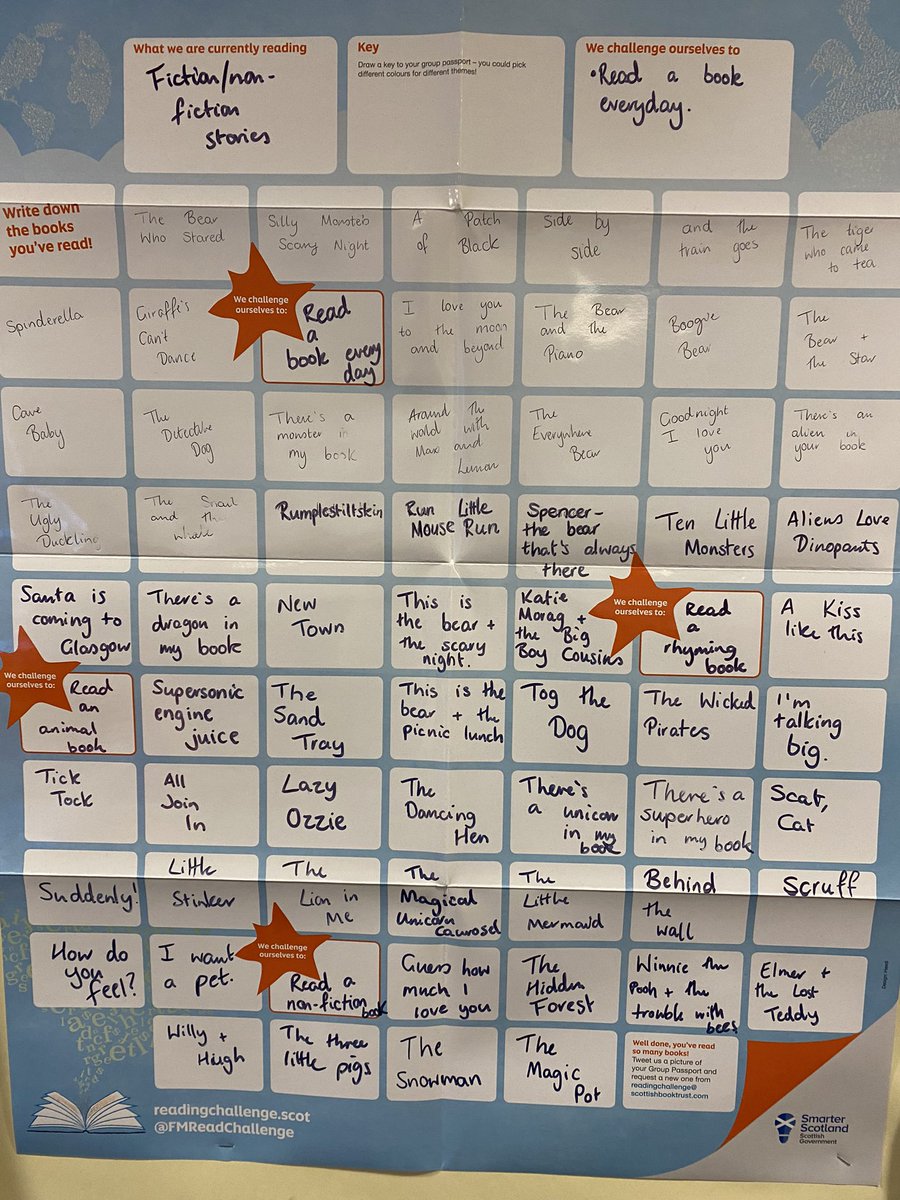 What we are currently reading
Fiction/non-
fiction
stories
Key
Draw a key to your group passport – you could pick
different colours for different themes!
We challenge ourselves to
• Read a book
everyday.
Write down
the books
you've read!
The Bear
Who Stared
Silly Monsteb
Scary Night
A Patch
of Black
Side by
side
and the
train goes
The tiger
who came
to tea
Spinderella
Giraffe's
Can't
Dance
We challenge
ourselves to:
Read
a
book every
day
I love you
to the moon
and beyond
The Bear
and the
Piano
Boogie
Bear
The
Bear +
the Star
Cave
Baby
The
Ditectave
Dog
There's a
monster in
my book
Around the
world with
Max and
Lemon
The
Everywhere
Bear
Goodnight
I love
you
There's an
alien in
your book
The
Ugly
Duckling
The Snail
and the
whale
Rumplestiltskin
Run Little
Mouse Run
Spencer-
the bear
that's always
there
Ten Little
Monsters
Aliens Love
Dinopants
Santa is
coming to
Glasgow
There's a
dragon in
my book
New
Town
This is
the bear +
the scary
night.
Katie
Morag +
the Big
Boy Cousins
We challenge
ourselves to:
Read
a
rhyming
book
A Kiss
like this
We challenge
ourselves to:
Read
an
animal
book
Supersonic
engine
juice
The
Sand
Tray
This is the
bear + the
picnic lunch
Tog the
Dog
The Wicked
Pirates
I'm
talking
big.
Tick
Tock
All
Join
In
Lazy
Ozzie
The
Dancing
Hen
There's
a unicorn
in my
book
There's a
superhero
in my book
Scat,
Cat
Suddenly!
Little
Stinker
The
Lion in
Me
The
Magical
Unicorn
Caurosel
The
Little
Mermaid
Behind
the
wall
Scruff
How do
you
feel?
I want
a pet.
We challenge
ourselves to:
Read a
non-fiction
book
Guess how
much I
love you
The
Hidden
Forest
Winnie the
Pooh + the
trouble with
bees
Elmer +
the Lost
Teddy
Willy +
Hugh
The three
little pigs
The
Snowman
The
Magic
Pot
Well done, you've read
so many books!
Tweet us a picture of
your Group Passport and
request a new one from
readingchallenge@
scottishbooktrust.com
readingchallenge.scot
@FMReadChallenge
Smarter
Scotland
Scottish
Government